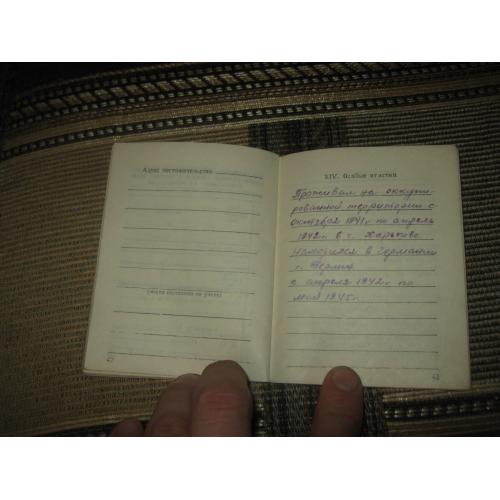 Адрес местожительства
42
XIV. Особые отметки
Проживал на оккупи-
рованной территории с
октября 1941г. по апрель
1942г. в г. Харькове
Находился в Германии
г. Берлин
с апреля 1942г. по
май 1945г.
43